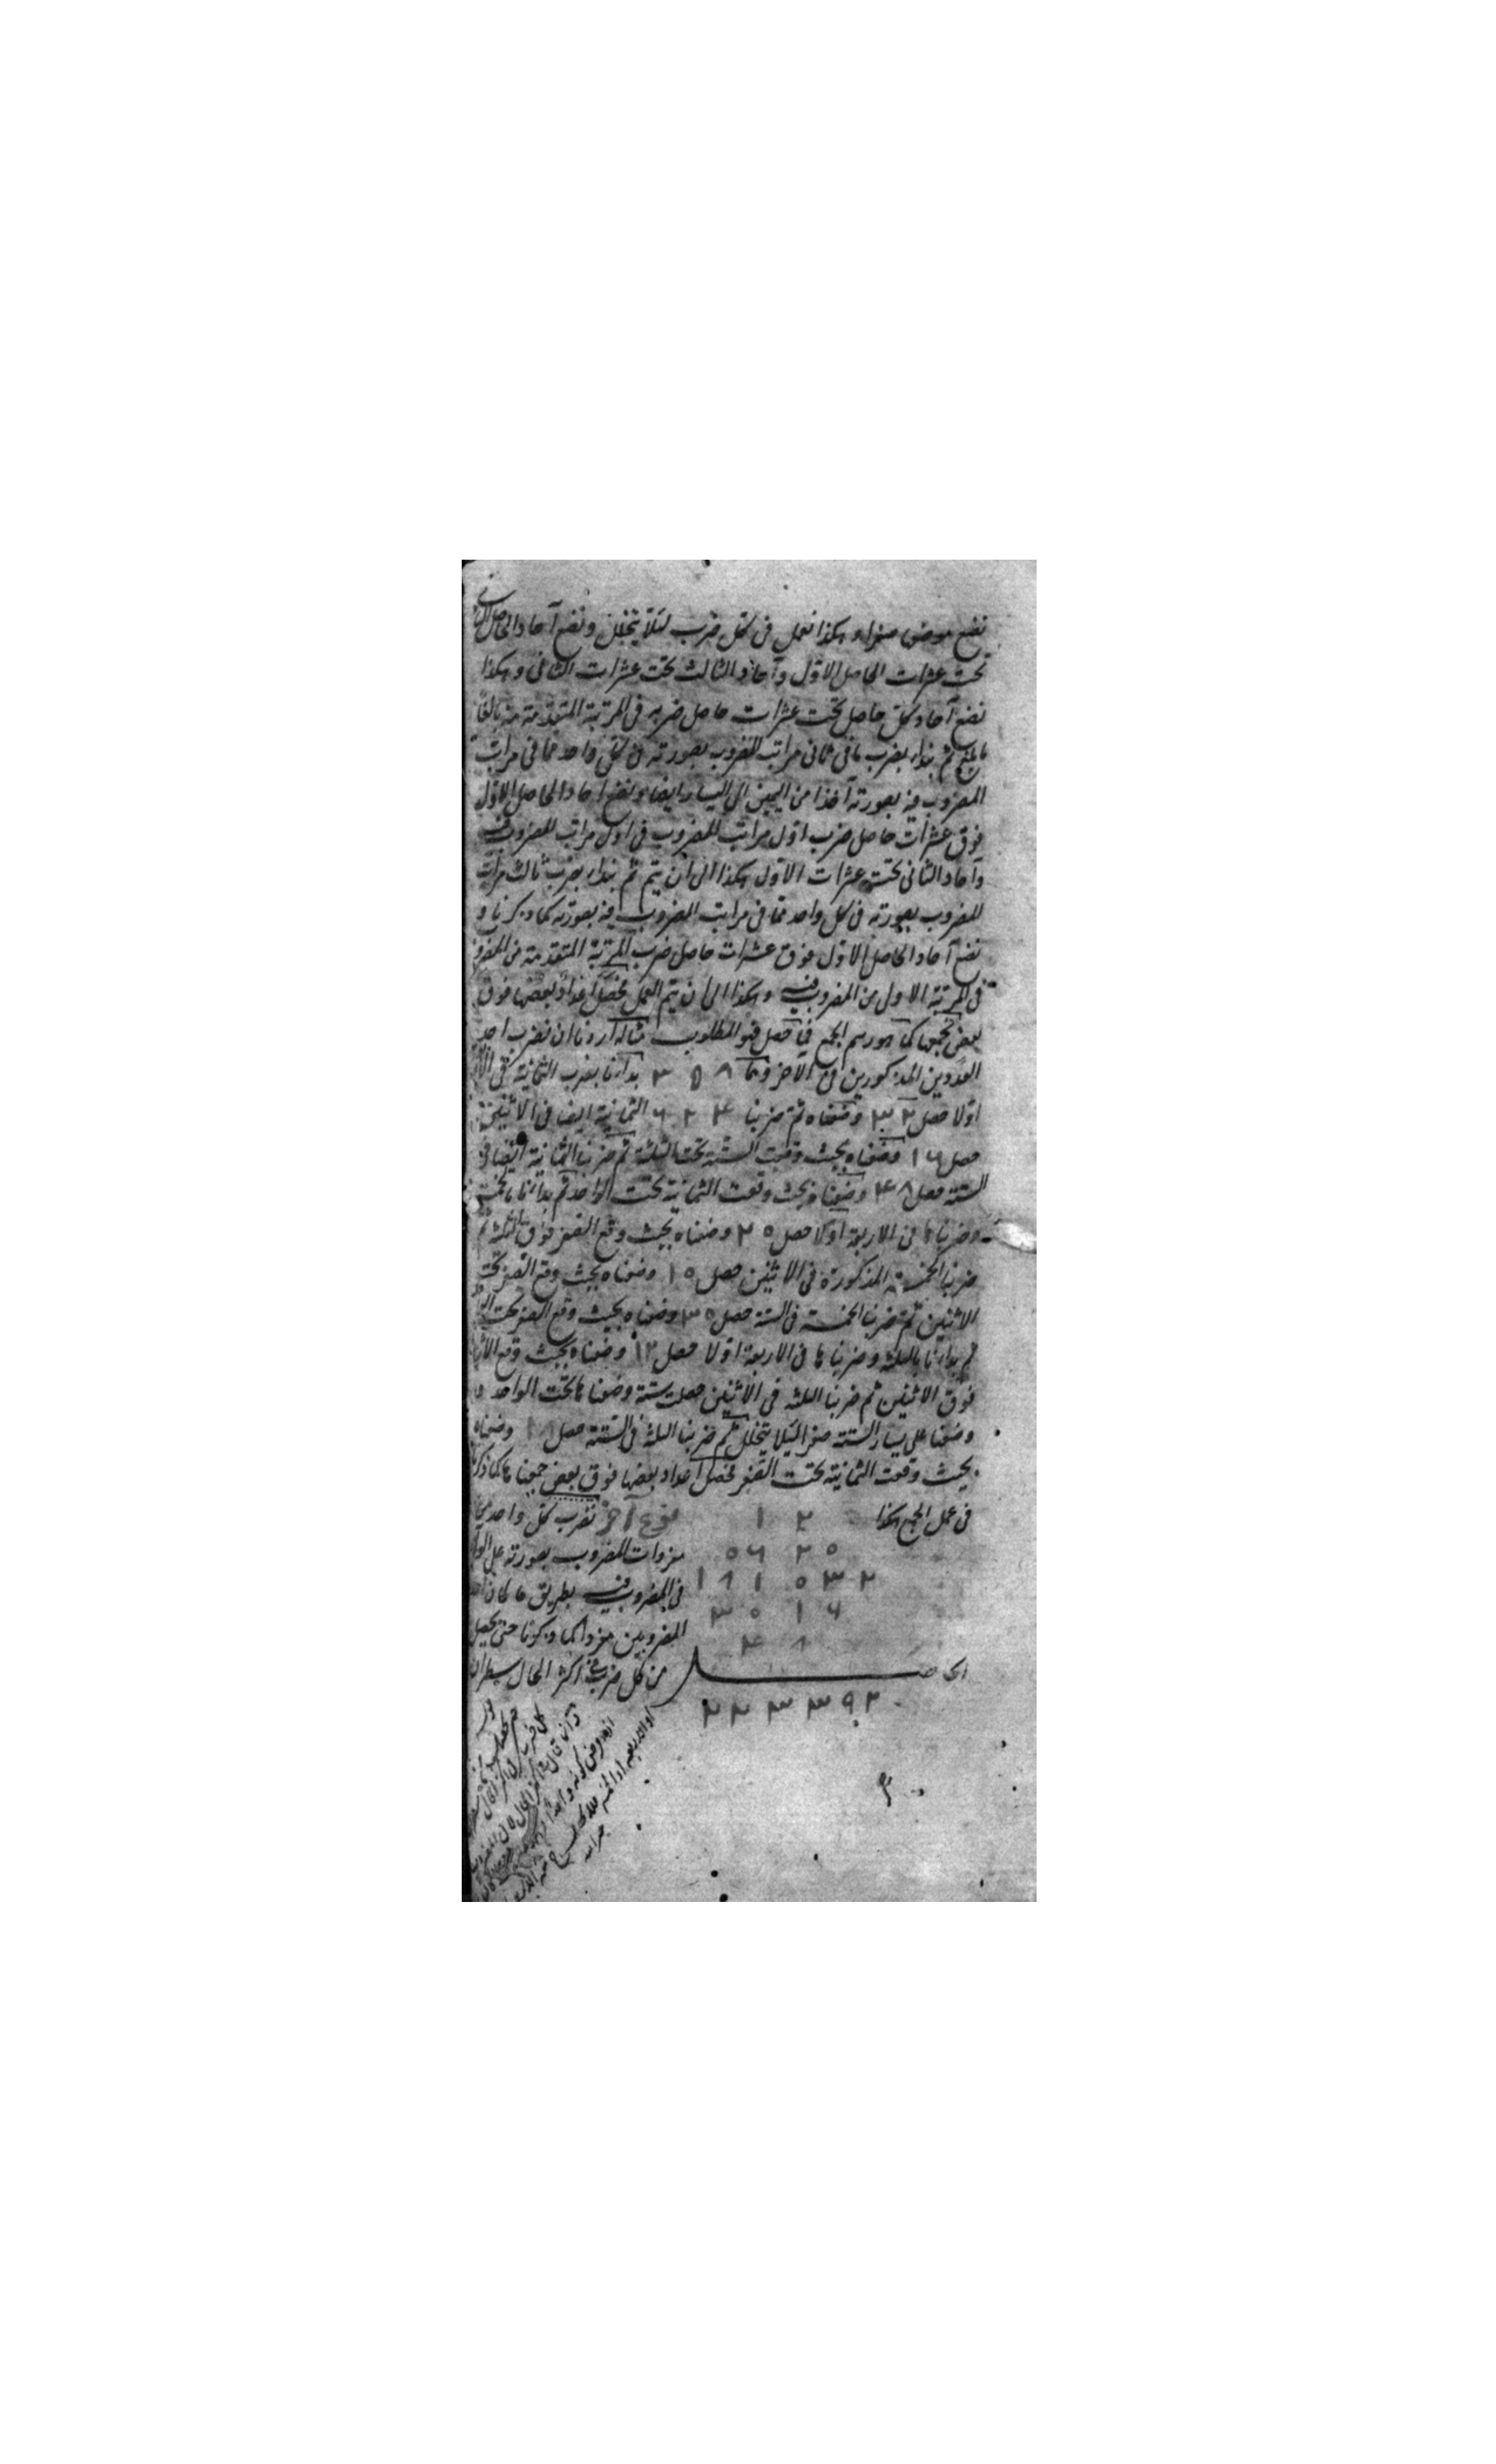 نضع موضعها صفرا وهكذا نعمل في كل ضرب لئلا يتخلل ونضع آحاد الحاصل الثاني
تحت عشرات الحاصل الاول وآحاد الثالث تحت عشرات الثاني وهكذا
نضع آحاد كل حاصل تحت عشرات حاصل ضربه في المرتبة المتقدمة منه بالغا
ما بلغ ثم نبداء بضرب ما في ثاني مراتب المضروب بصورته في كل واحد مما في مراتب
المضروب فيه بصورته آخذا من اليمين الى اليسار ايضا ونضع احاد الحاصل الاول
فوق عشرات حاصل ضرب اول مراتب المضروب في اول مراتب المضروب فيه
وآحاد الثاني تحت عشرات الاول هكذا الى ان يتم ثم نبداء بضرب ثالث مراتب
المضروب بصورته في كل واحد مما في مراتب المضروب فيه بصورته كما ذكرنا و
نضع آحاد الحاصل الاول فوق عشرات حاصل ضرب المرتبة المتقدمة من المضروب
في المرتبة الاولى من المضروب فيه وهكذا الى ان يتم العمل يحصل اعداد بعضها فوق
بعض نجمعها كما هو رسم الجمع فما حصل فهو المطلوب مثاله اردنا ان نضرب احد
العددين المذكورين في الآخر وهما ٣٥٨ بدأنا بضرب الثمانية في الاربعة
اولا حصل ٣٢ وضعناه ثم ضربنا ٦٢٤ الثمانية ايضا في الاثنين
حصل ١٦ وضعناه بحيث وقعت الستة تحت الثلثة ثم ضربنا الثمانية ايضا في
الستة حصل ٤٨ وضعناه بحيث وقعت الثمانية تحت الواحد ثم بدأنا بالخمسة
وضربناها في الاربعة اولا حصل ٢٥ وضعناه بحيث وقع الصفر فوق الثلثة ثم
ضربنا الخمسة المذكورة في الاثنين حصل ١٥ وضعناه بحيث وقع الصفر تحت
الاثنين ثم ضربنا الخمسة في الستة حصل ٣٥ وضعناه بحيث وقع الصفر تحت الواحد
ثم بدأنا بالثلثة وضربناها في الاربعة اولا حصل ١٢ وضعناه بحيث وقع الاثنان
فوق الاثنين ثم ضربنا الثلثة في الاثنين حصلت ستة وضعناها تحت الواحد و
وضعنا على يسار الستة صفرا لئلا يتخلل ثم ضربنا الثلثة في الستة حصل ١٨ وضعناه
بحيث وقعت الثمانية تحت الصفر فحصل اعداد بعضها فوق بعض جمعناها كما ذكرنا
في عمل الجمع هكذا ١ ٢ نوع آخر نضرب كل واحد من
٥ ٦ ٢ ٥ مفردات المضروب بصورته على الولاء
١ ٨ ١ ٥ ٣ ٢ في المضروب فيه بطريق ما كان احد
٣ ٥ ١ ٦ المضروبين مفردا كما ذكرنا حتى يحصل
٤ ٨ من كل ضرب في اكثر الحال سطران
الحاصل
٢ ٢ ٣ ٣ ٩ ٢